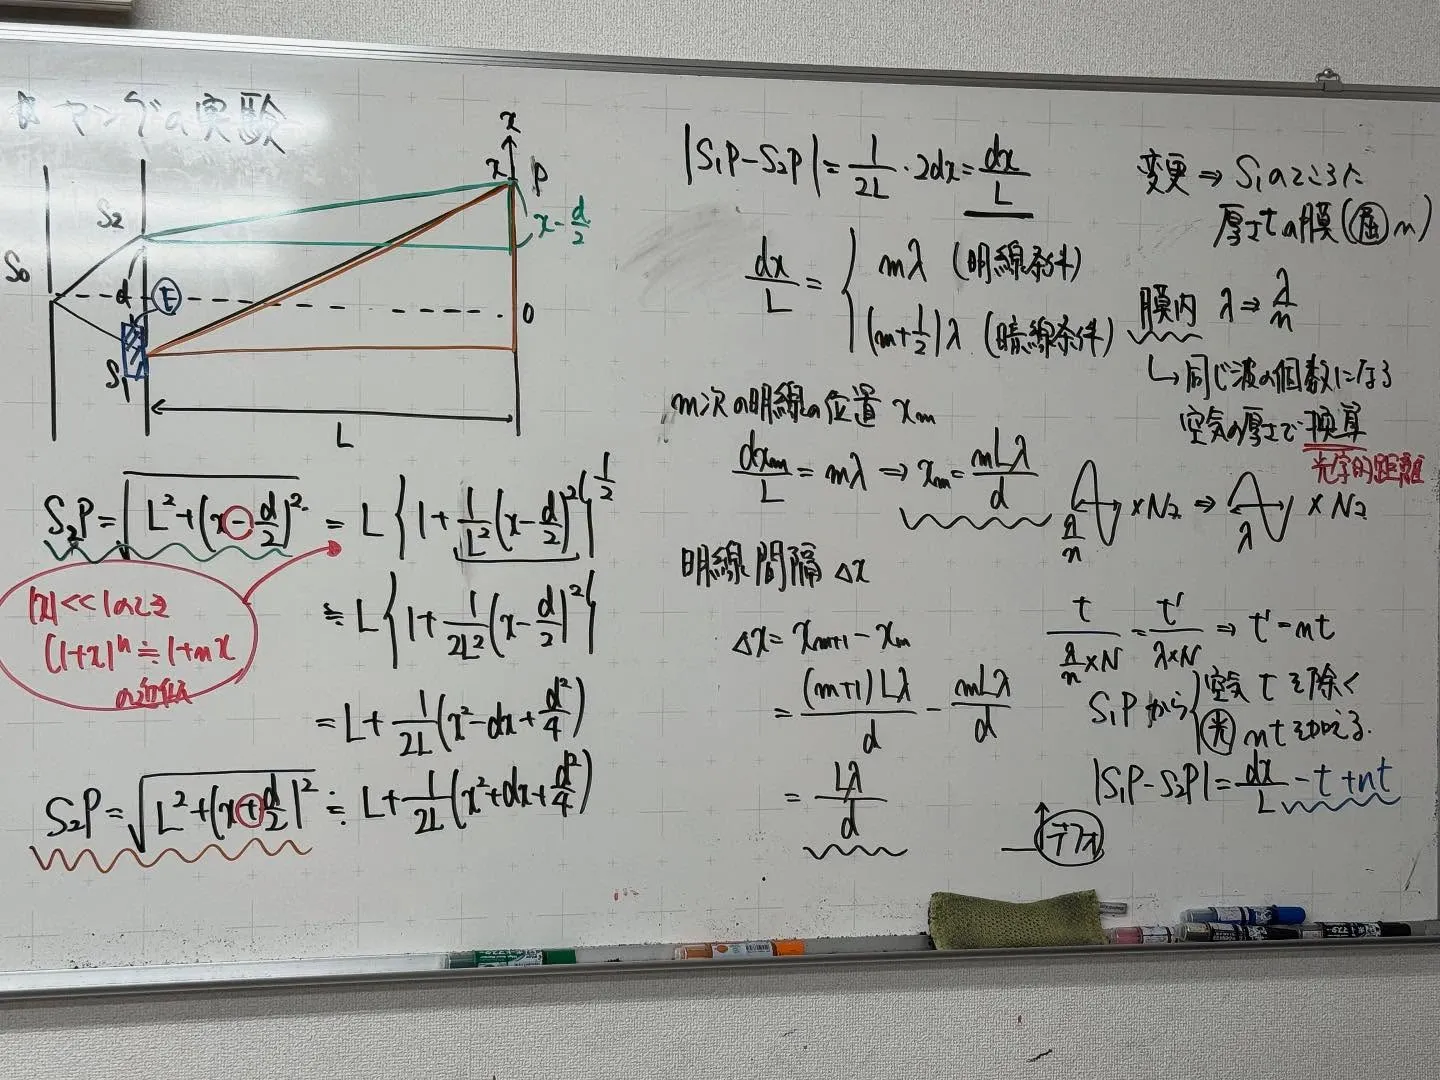 ☆ ヤングの実験
x
x P
S2
x-d/2
S0
d
E
0
S1
L
S2P=√(L²+(x-d/2)²) = L{1+1/L²(x-d/2)²}^1/2
|x|<<1のとき
(1+x)^n≒1+nx
の近似
≒L{1+1/2L²(x-d/2)²}
=L+1/2L(x²-dx+d²/4)
S2P=√(L²+(x+d/2)²)≒L+1/2L(x²+dx+d²/4)
|S1P-S2P|=1/2L・2dx=dx/L
dx/L={ mλ (明線条件)
(m+1/2)λ (暗線条件)
m次の明線の位置 xm
dxm/L=mλ⇒xm=mLλ/d
明線間隔 Δx
Δx=xm+1-xm
=(m+1)Lλ/d-mLλ/d
=Lλ/d
変更⇒S1のところに
厚さtの膜(屈n)
膜内 λ⇒λ/n
↳同じ波の個数になる
空気の厚さで換算
光学的距離
λ/n ×N2⇒ λ ×N2
t/(λ/n×N)=t'/(λ×N)⇒t'=nt
S1Pから{空気tを除く
光 ntを加える.
|S1P-S2P|=dx/L-t+nt
プラス